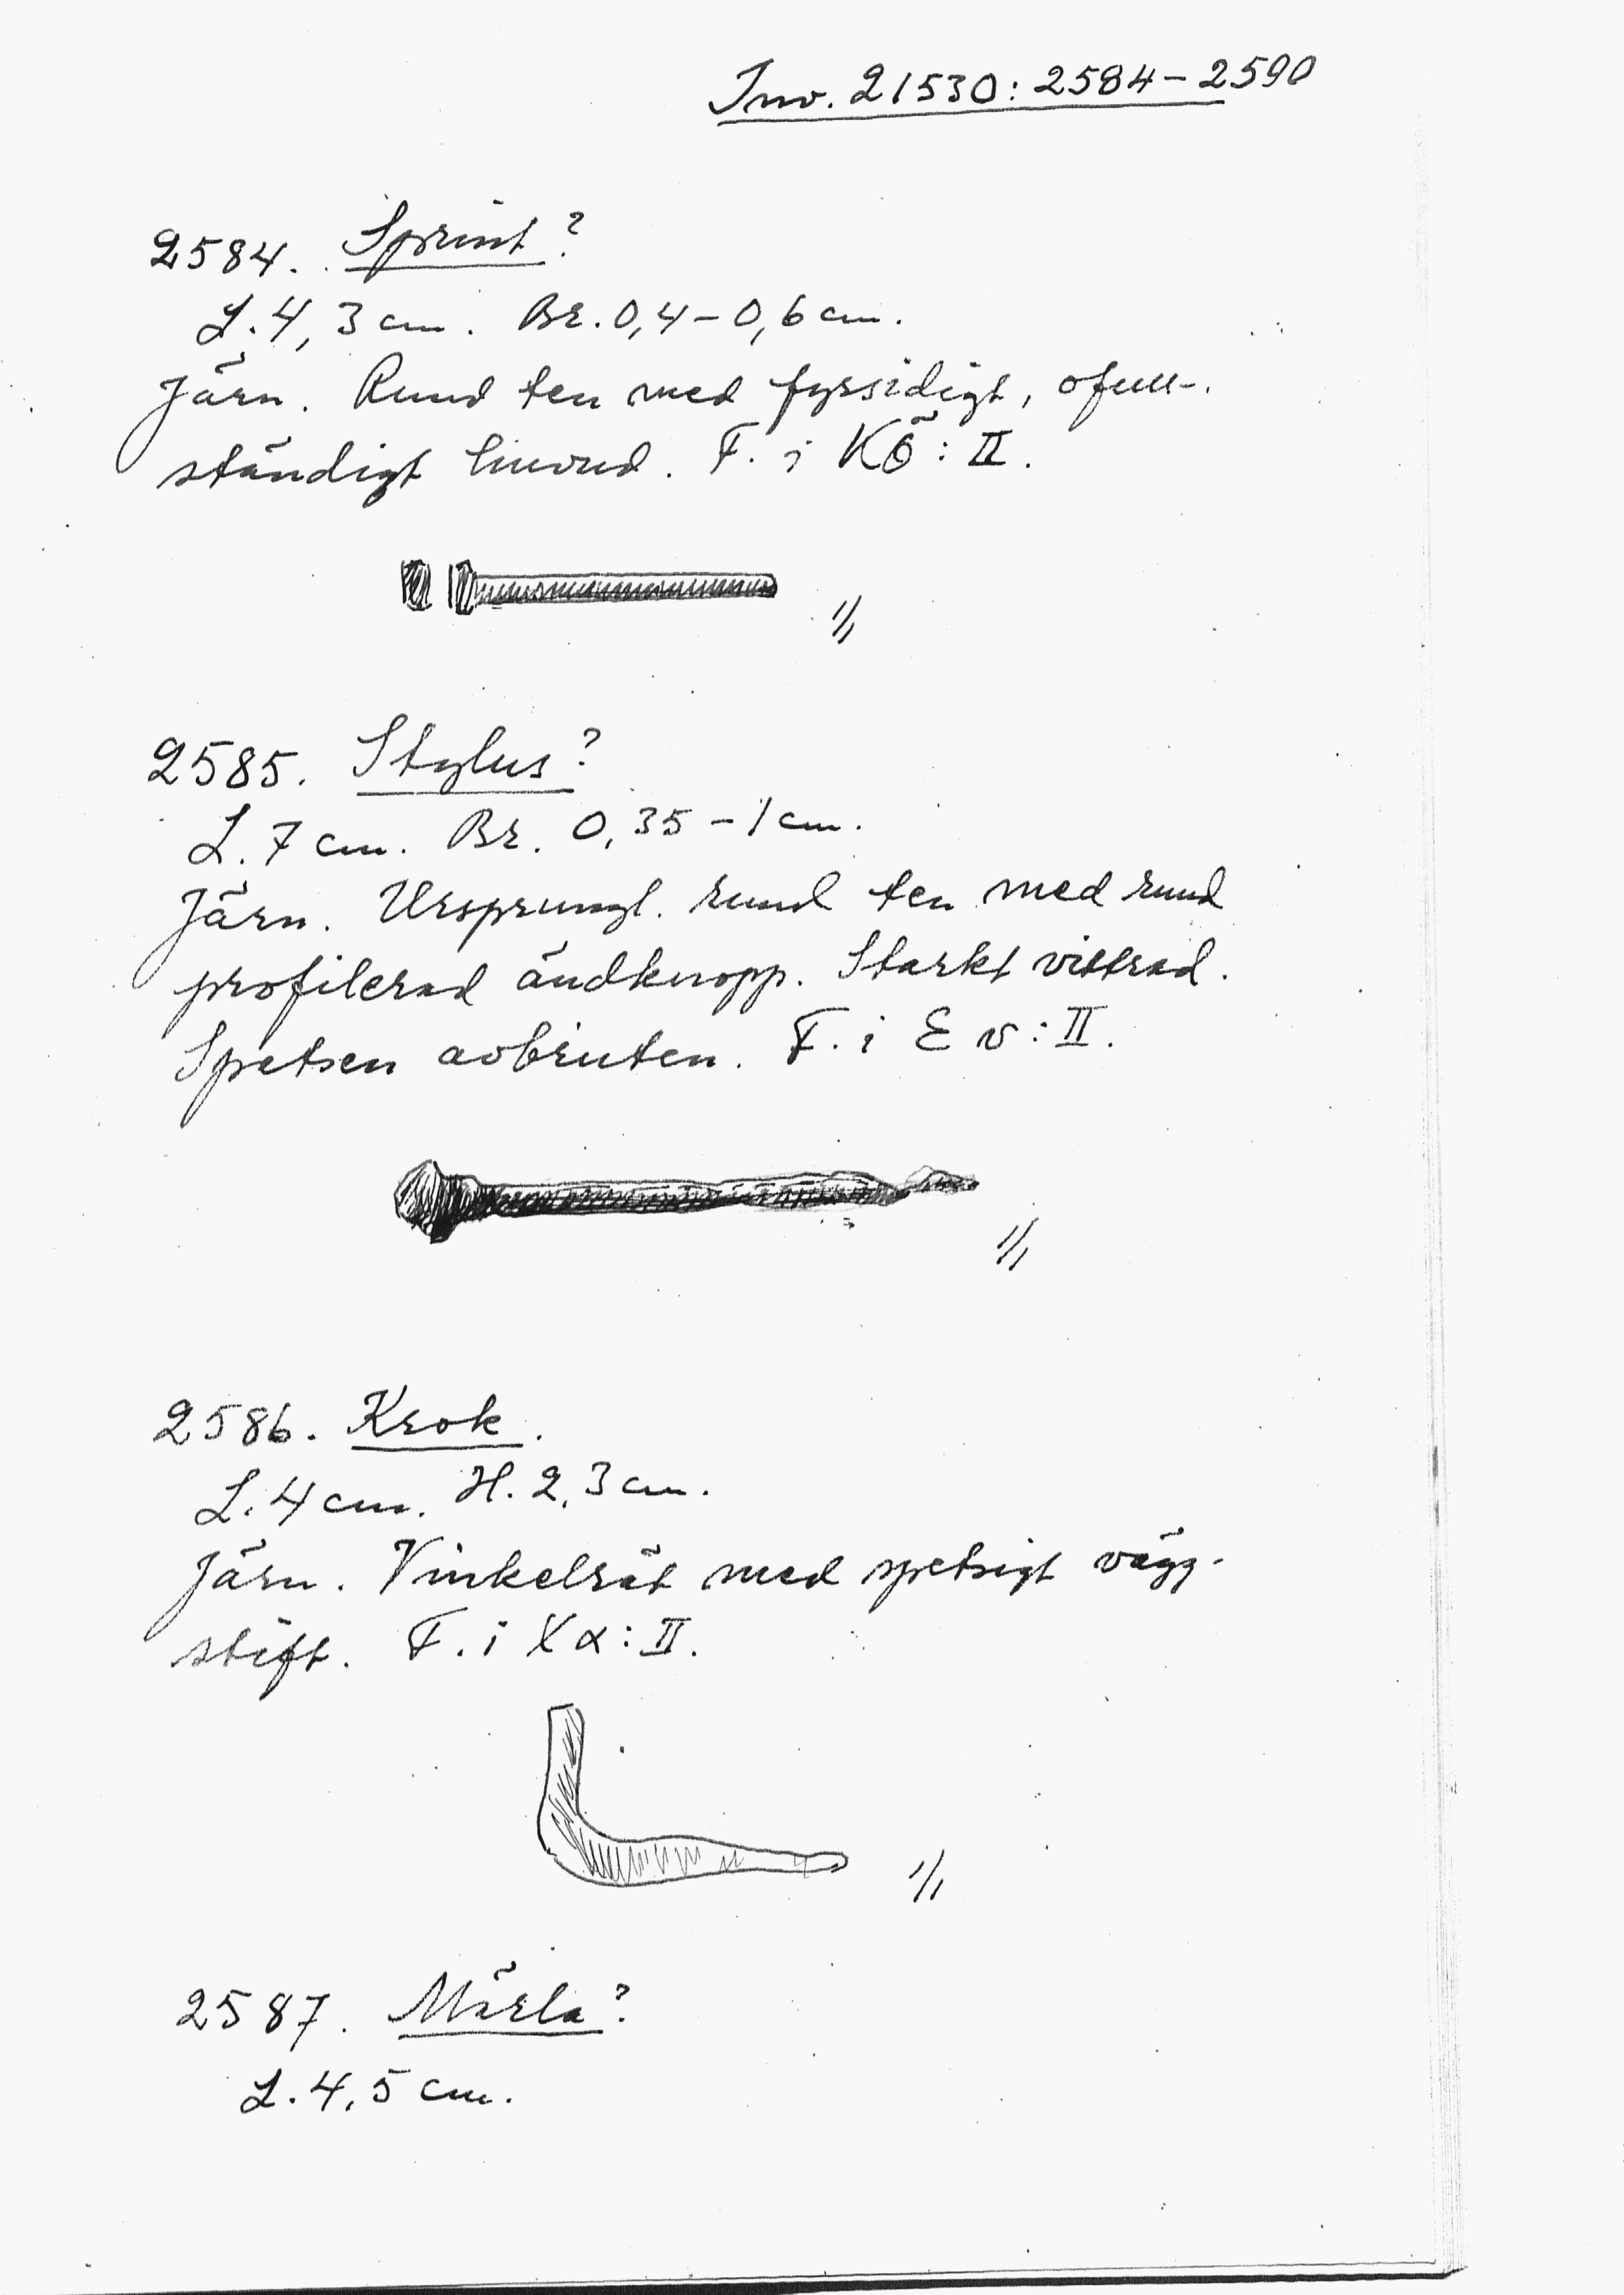 Inv. 21530: 2584-2590
2584. Sprint?
L. 4,3 cm. Br. 0,4-0,6 cm.
Järn. Rund ten med fyrsidigt, ofull-
ständigt huvud. F. i KÖ: II.
1/1
2585. Stylus?
L. 7 cm. Br. 0,35-1 cm.
Järn. Ursprungl. rund ten med rund
profilerad ändknopp. Starkt vittrad.
Spetsen avbruten. F. i E v: II.
1/1
2586. Krok.
L. 4 cm. H. 2,3 cm.
Järn. Vinkelrät med spetsigt vägg-
stift. F. i Xα: II.
1/1
2587. Märla?
L. 4,5 cm.